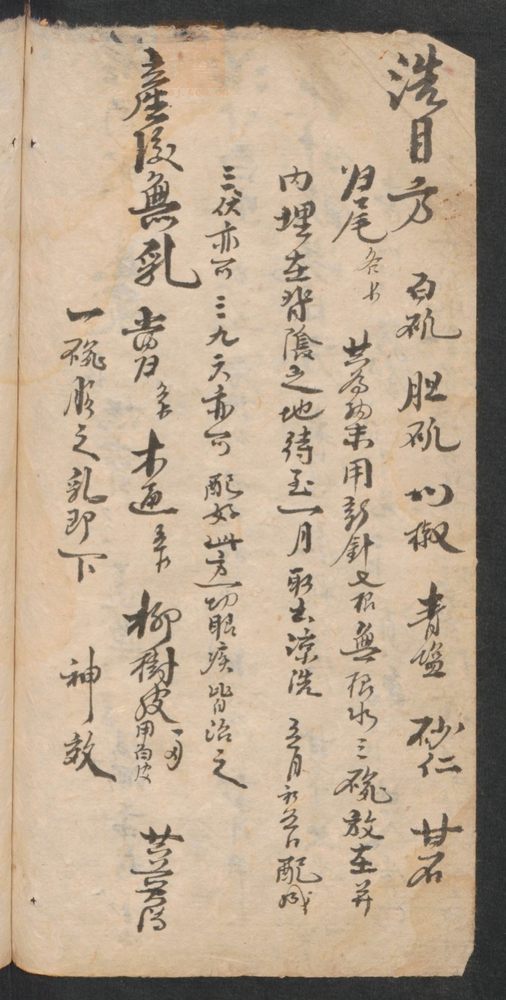 洗目方 白矾 胆矾 川椒 青盐 砂仁 甘石
归尾 各 共为细末用新針七根無根水三碗放在井
内埋在背陰之地待至一月取出凉洗 五月初五日配
三伏亦可 三九天亦可 配好此方一切眼疾皆治之
產後無乳 當归 木通 柳樹皮用白皮
一碗服之乳即下 神效